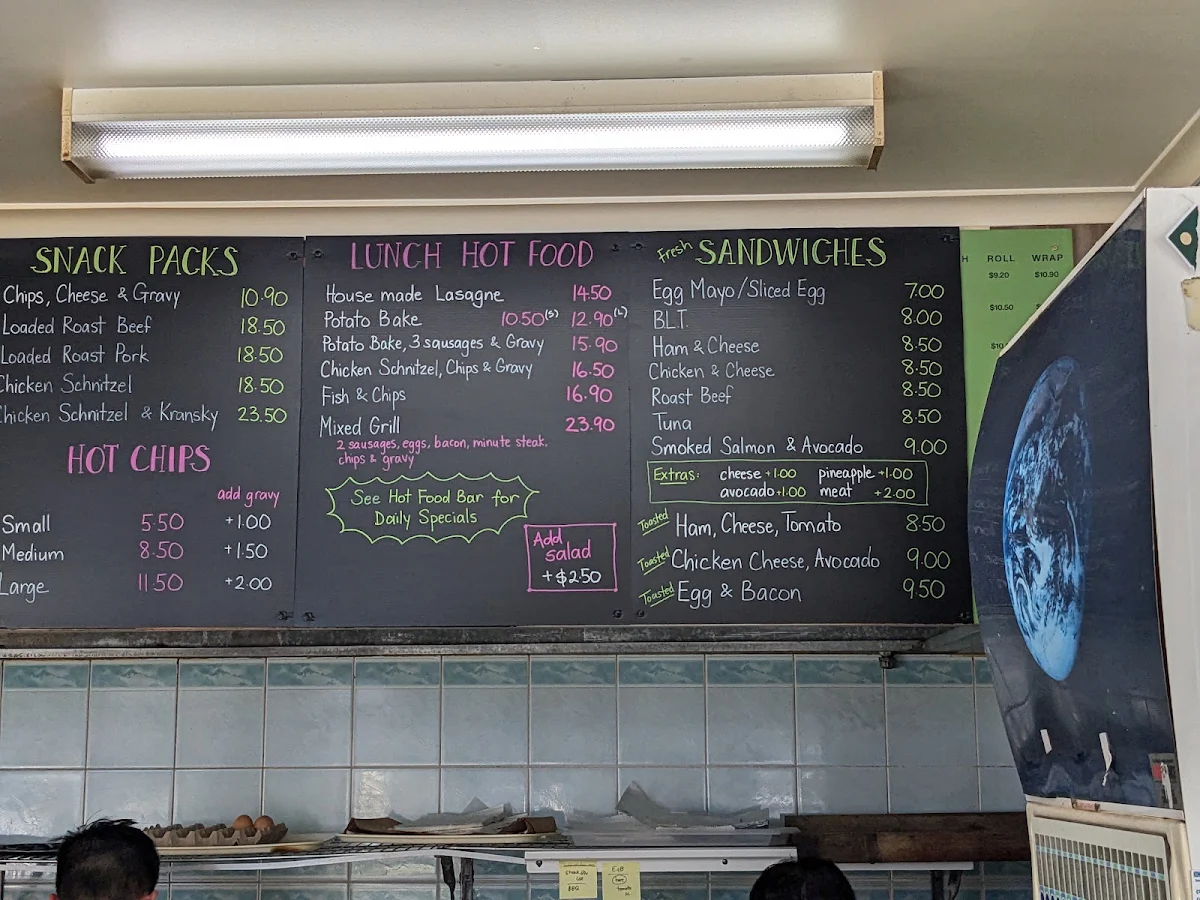 SNACK PACKS
Chips, Cheese & Gravy 10.90
Loaded Roast Beef 18.50
Loaded Roast Pork 18.50
Chicken Schnitzel 18.50
Chicken Schnitzel & Kransky 23.50
HOT CHIPS
add gravy
Small 5.50 +1.00
Medium 8.50 +1.50
Large 11.50 +2.00
LUNCH HOT FOOD
House made Lasagne 14.50
Potato Bake 10.50(s) 12.90(L)
Potato Bake, 3 sausages & Gravy 15.90
Chicken Schnitzel, Chips & Gravy 16.50
Fish & Chips 16.90
Mixed Grill 23.90
2 sausages, eggs, bacon, minute steak.
chips & gravy
See Hot Food Bar for
Daily Specials
Add
salad
+$2.50
Fresh SANDWICHES
Egg Mayo/Sliced Egg 7.00
B.L.T. 8.00
Ham & Cheese 8.50
Chicken & Cheese 8.50
Roast Beef 8.50
Tuna 8.50
Smoked Salmon & Avocado 9.00
Extras: cheese +1.00 pineapple +1.00
avocado +1.00 meat +2.00
Toasted Ham, Cheese, Tomato 8.50
Toasted Chicken Cheese, Avocado 9.00
Toasted Egg & Bacon 9.50
H ROLL WRAP
$9.20 $10.90
$10.50